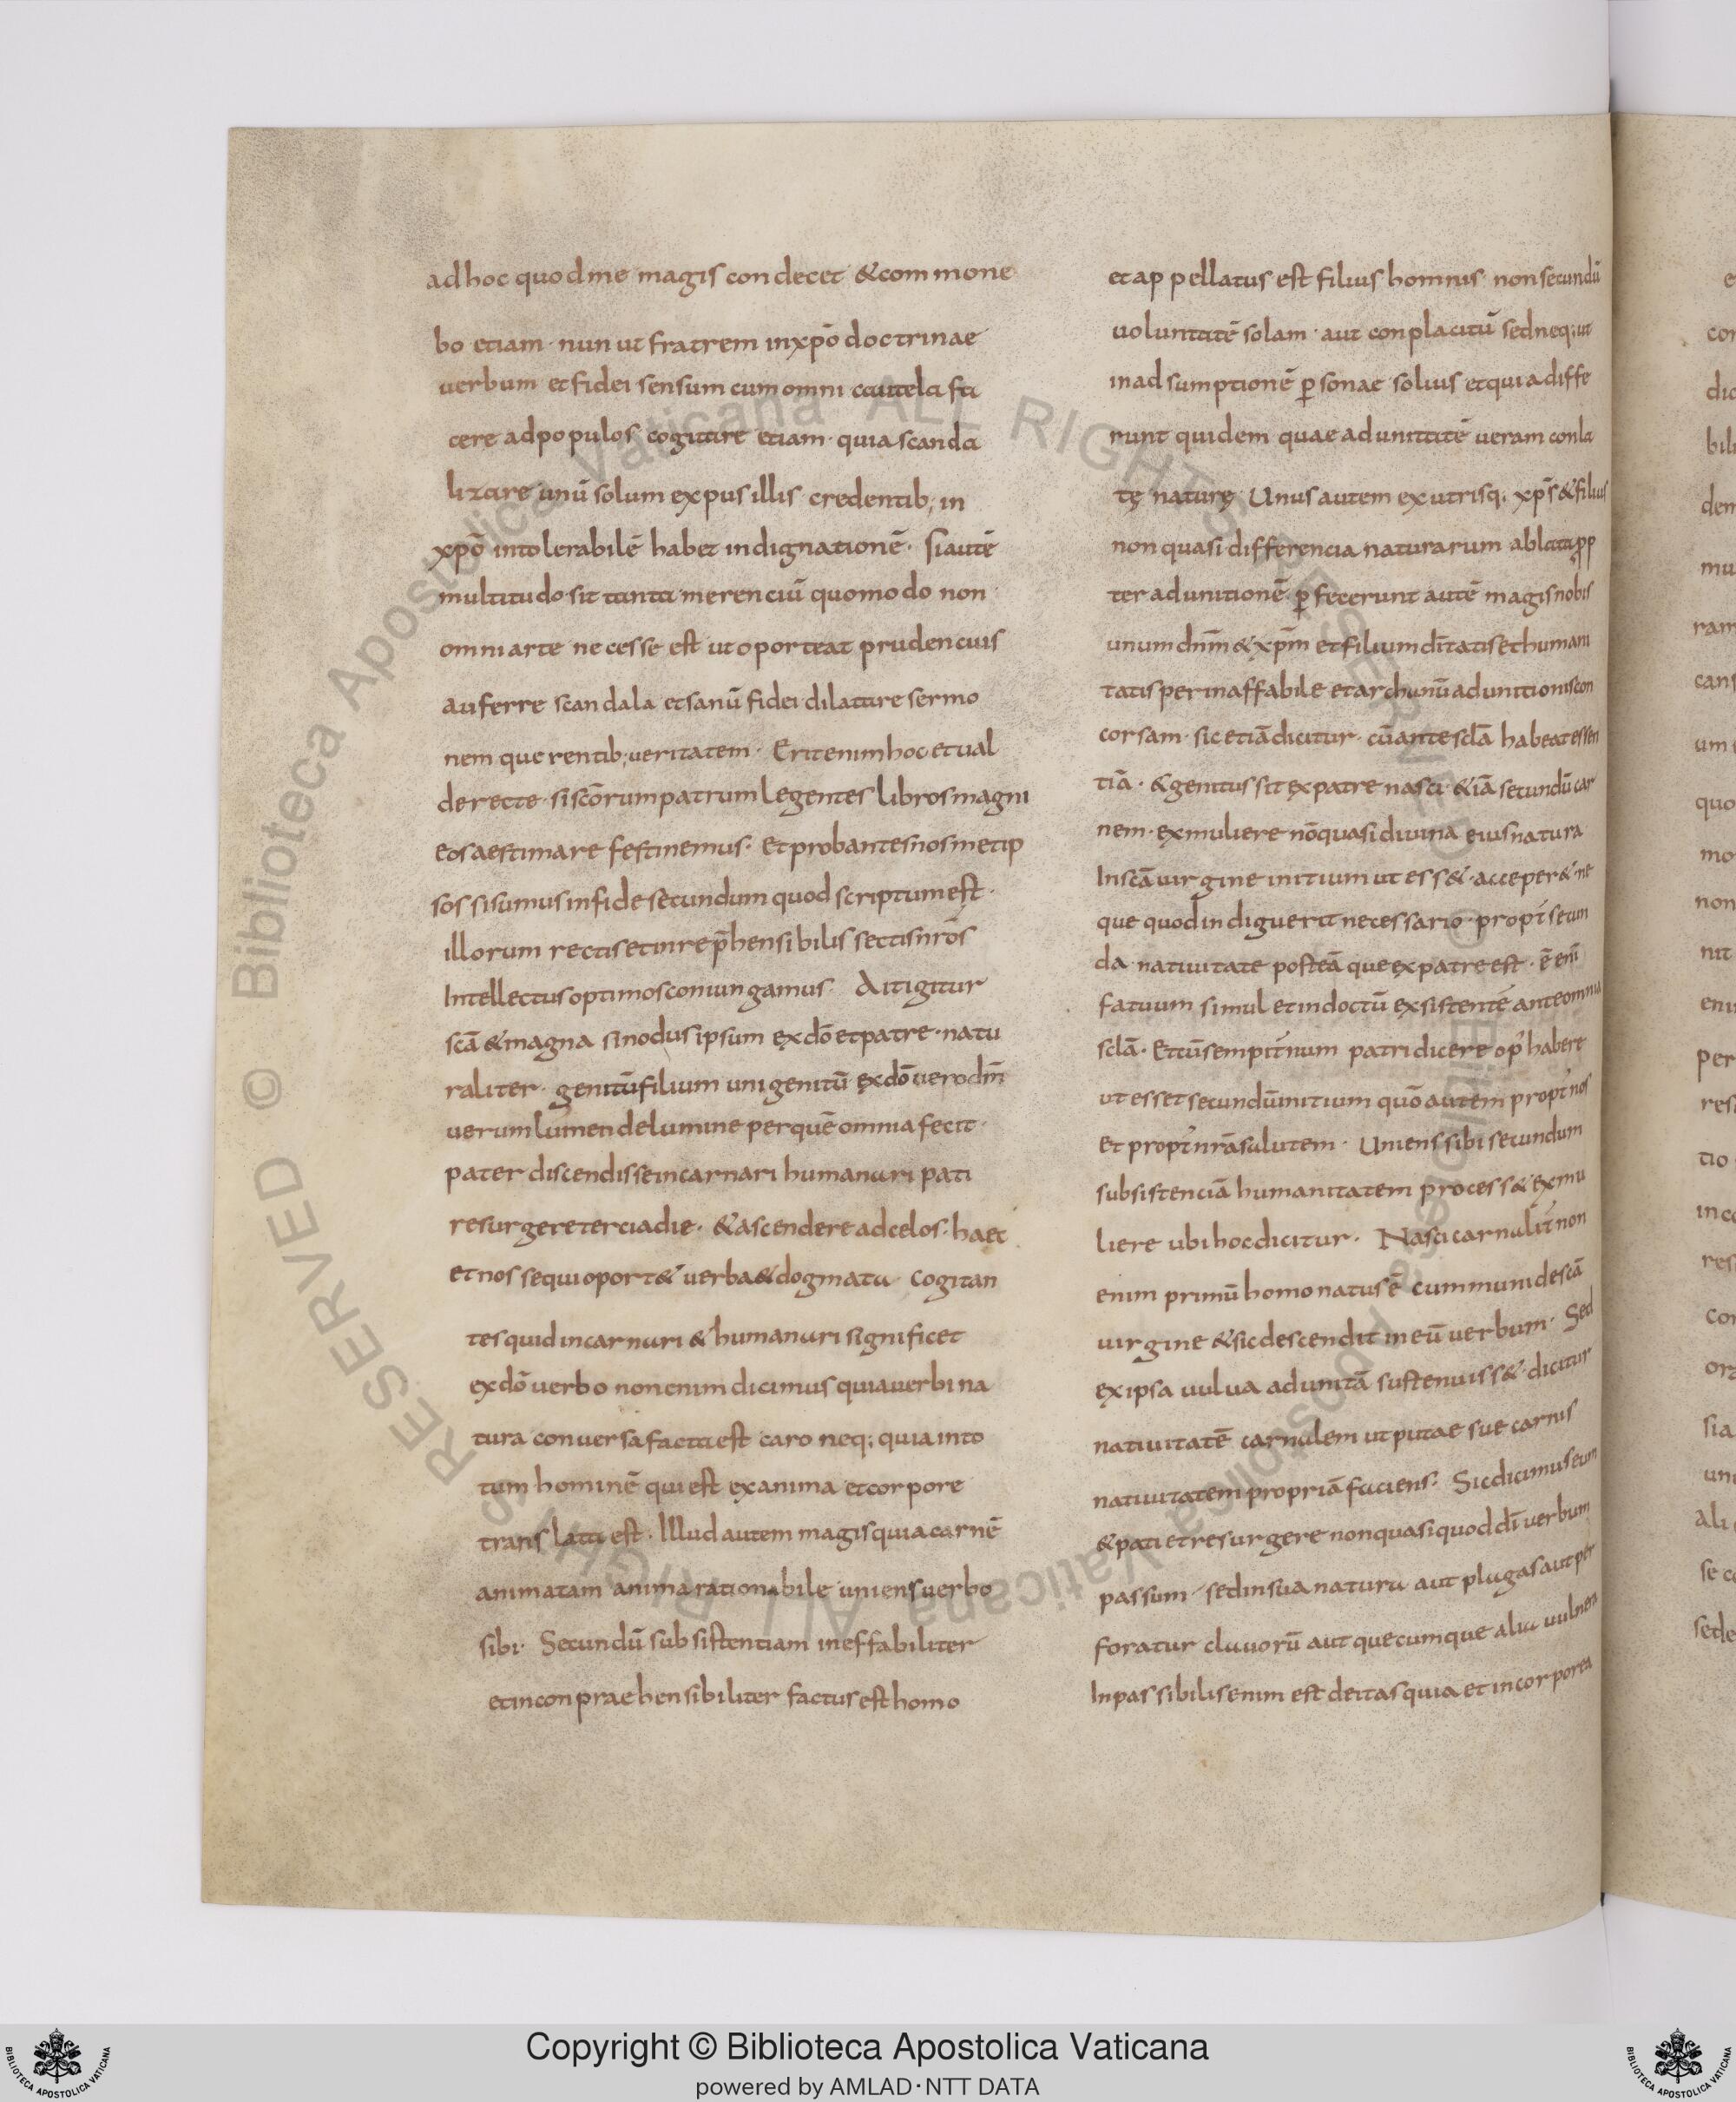 ad hoc quod me magis condecet & commone
bo etiam · nun ut fratrem in xpō doctrinae
verbum et fidei sensum cum omni cautela fa
cere ad populos cogitare etiam · quia scanda
lizare unū solum expusillis credentib; in
xpō intolerabilē habet indignationē · Si autē
multitudo sit tanta merenciū quomodo non
omni arte necesse est ut oporteat prudencius
auferre scandala et sanū fidei dilatare sermo
nem querentib; veritatem · Erit enim hoc et ual
de recte · si scōrum patrum legentes libros magni
eos aestimare festinemus · Et probantes nosmetip
sos si sumus in fide secundum quod scriptum est ·
illorum rectis et inrep̄hensibilis sectis nrōs
Intellectus optimos coniungamus · Ait igitur
scā & magna sinodus ipsum ex dō et patre · natu
raliter · genitū filium unigenitū ex dō uero dm̄
uerum lumen de lumine per quē omnia fecit ·
pater discendisse incarnari humanari pati
resurgere tercia die · & ascendere ad celos · haec
et nos sequi oport& uerba & dogmata cogitan
tes quid incarnari & humanari significet
ex dō uerbo non enim dicimus quia uerbi na
tura conuersa facta est caro neq; quia in to
tum hominē qui est ex anima et corpore
translata est · Illud autem magis quia carnē
animatam anima rationabile uniens uerbo
sibi · Secundū subsistentiam ineffabiliter
et inconpraehensibiliter factus est homo
et appellatus est filius hominis · non secundū
uoluntatē solam · aut conplacitū sed neq; ut
in adsumptionē p̱sonae solius et quia diffe
runt quidem quae ad unitatē ueram conla
tę naturę · Unus autem ex utrisq; xp̄s & filius
non quasi differencia naturarum ablata prop
ter adunitionē · p̱fecerunt autē magis nobis
unum dnm̄ & xpm̄ et filium dītatis et humani
tatis per inaffabile et archanū adunitionis con
corsam · sic etiā dicitur · cū ante sclā habeat essen
tiā · & genitus sit ex patre nasci · & iā secundū car
nem · ex muliere nō quasi diuina eius natura
In scā uirgine initium ut ess& · acceper& · ne
que quod indiguerit necessario · propt̄ secun
da natiuitate posteā que ex patre est · ē eni
fatuum simul et indoctū exsistentē ante omnia
sclā · Et cū sempit̄num patri dicere op' habere
ut esset secundū initium quō autem propt̄ nos
Et propt̄ nrā salutem · Uniens sibi secundum
subsistenciā humanitatem process& ex mu
liere ubi hoc dicitur · Nasci carnalit̄ non
enim primū homo natus ē cummuni de scā
uirgine & sic descendit in eū uerbum · Sed
ex ipsa uulua adunitā sustenuiss& · dicitur
natiuitatē carnalem ut putae sue carnis
natiuitatem propriā faciens · Sic dicimus eum
& pati et resurgere non quasi quod dī uerbum
passum · sed in sua natura aut plagas aut per
foratur clauorū aut quecumque alia uulnera
Inpassibilis enim est deitas quia et incorporea
Copyright © Biblioteca Apostolica Vaticana
powered by AMLAD·NTT DATA